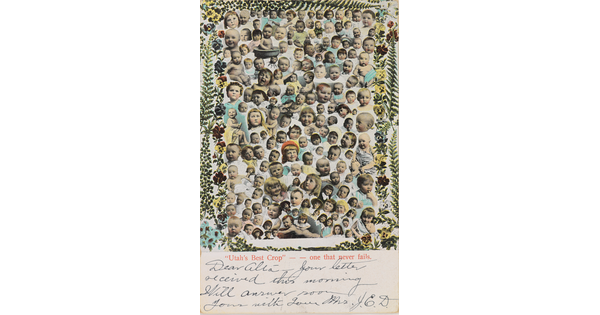 "Utah's Best Crop" — — one that never fails.
Dear Alta — Your letter
received this morning
Will answer soon
Yours with Love Mrs. J.E.D